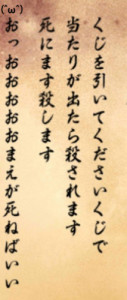 (´ω`)
くじを引いてくださいくじで
当たりが出たら殺されます
死にます殺します
おっおおおおおまえが死ねばいい